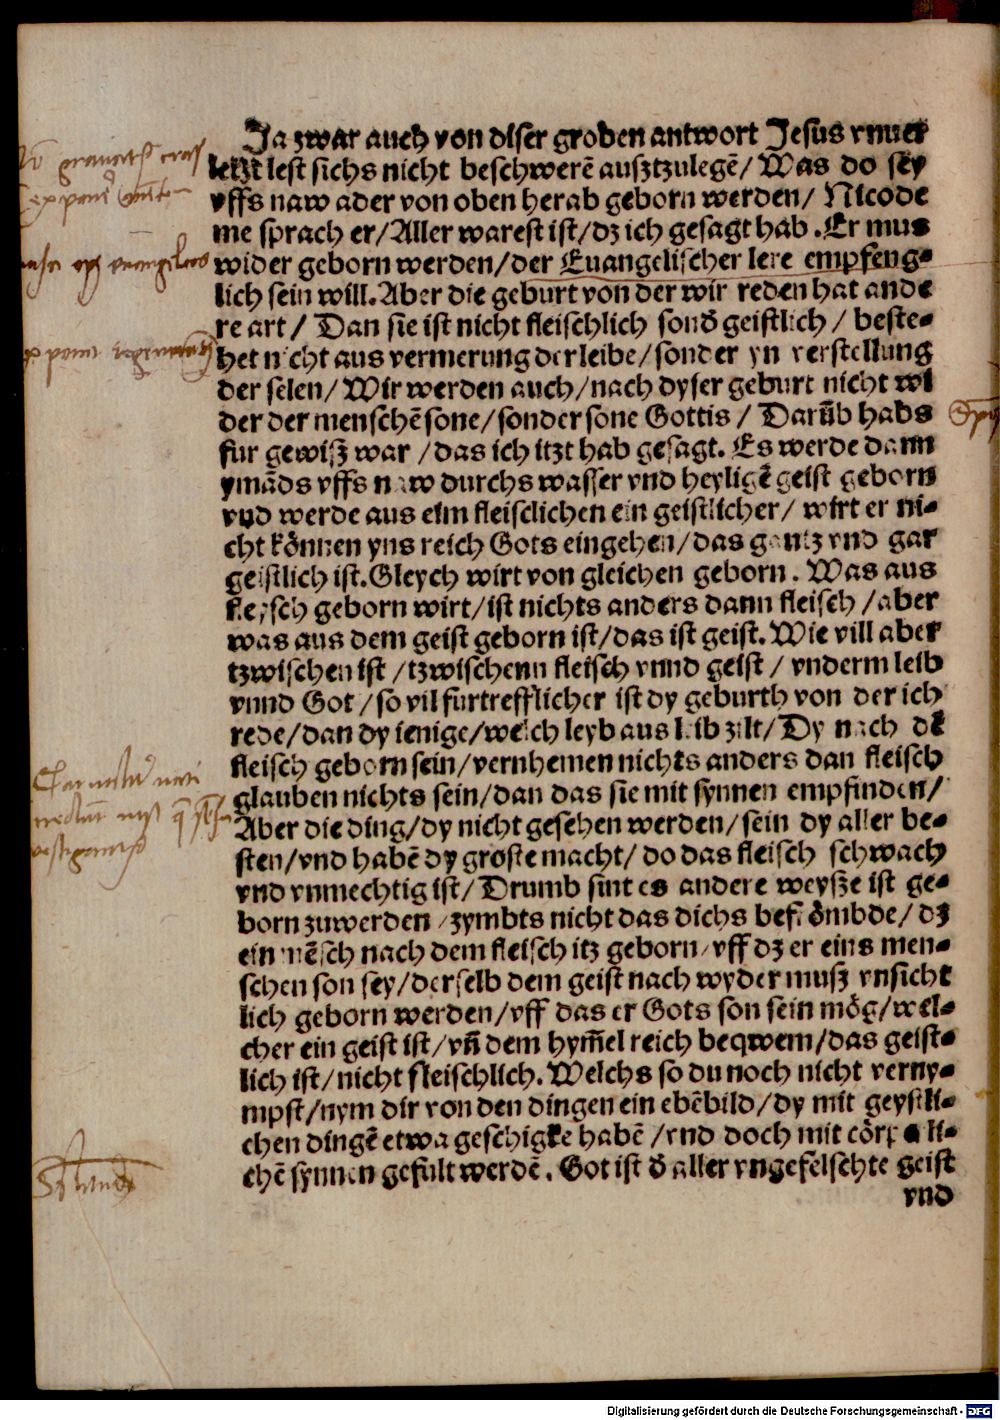 Ja zwar auch von diser groben antwort Jesus vnuer
lest sichs nicht beschwerē auſztzulegē/ Was do sey
vffs naw ader von oben herab geborn werden/ Nicode
me sprach er/ Aller warest ist/ dz ich gesagt hab. Er mus
wider geborn werden/ der Euangelischer lere empfeng⸗
lich sein will. Aber die geburt von der wir reden hat ande
re art/ Dan sie ist nicht fleischlich sond̄ geistlich/ beste⸗
het nicht aus vermerung der leibe/ sonder yn verstellung
der selen/ Wir werden auch/ nach dyser geburt nicht wi
der der menschē sone/ sonder sone Gottis/ Darūb habs
fur gewiſz war/ das ich itzt hab gesagt. Es werde dann
ymāds vffs naw durchs wasser vnd heyligē geist geborn
vnd werde aus eim fleisclichen ein geistlicher/ wirt er ni⸗
cht können yns reich Gots eingehen/ das gantz vnd gar
geistlich ist. Gleych wirt von gleichen geborn. Was aus
fleysch geborn wirt/ ist nichts anders dann fleisch/ aber
was aus dem geist geborn ist/ das ist geist. Wie vill aber
tzwischen ist/ tzwischenn fleisch vnnd geist/ vnderm leib
vnnd Got/ so vil furtrefflicher ist dy geburth von der ich
rede/ dan dy ienige/ welch leyb aus leib zilt/ Dy nach dē
fleisch geborn sein/ vernhemen nichts anders dan fleisch
glauben nichts sein/ dan das sie mit synnen empfinden/
Aber die ding/ dy nicht gesehen werden/ sein dy aller be⸗
sten/ vnd habē dy groste macht/ do das fleisch schwach
vnd vnmechtig ist/ Drumb sint es andere weyſze ist ge⸗
born zuwerden/ zymbts nicht das dichs befrömbde/ dz
ein mēsch nach dem fleisch itz geborn/ vff dz er eins men⸗
schen son sey/ derselb dem geist nach wyder muſz vnsicht
lich geborn werden/ vff das er Gots son sein mög/ wel⸗
cher ein geist ist/ vn̄ dem hym̄el reich beqwem/ das geist⸗
lich ist/ nicht fleischlich. Welchs so du noch nicht verny⸗
mpst/ nym dir von den dingen ein ebēbild/ dy mit geystli⸗
chen dingē etwa geschigke habē/ vnd doch mit cörpeli⸗
chē synnen gefult werdē. Got ist d̄ aller vngefelschte geist
vnd
Digitalisierung gefördert durch die Deutsche Forschungsgemeinschaft - DFG